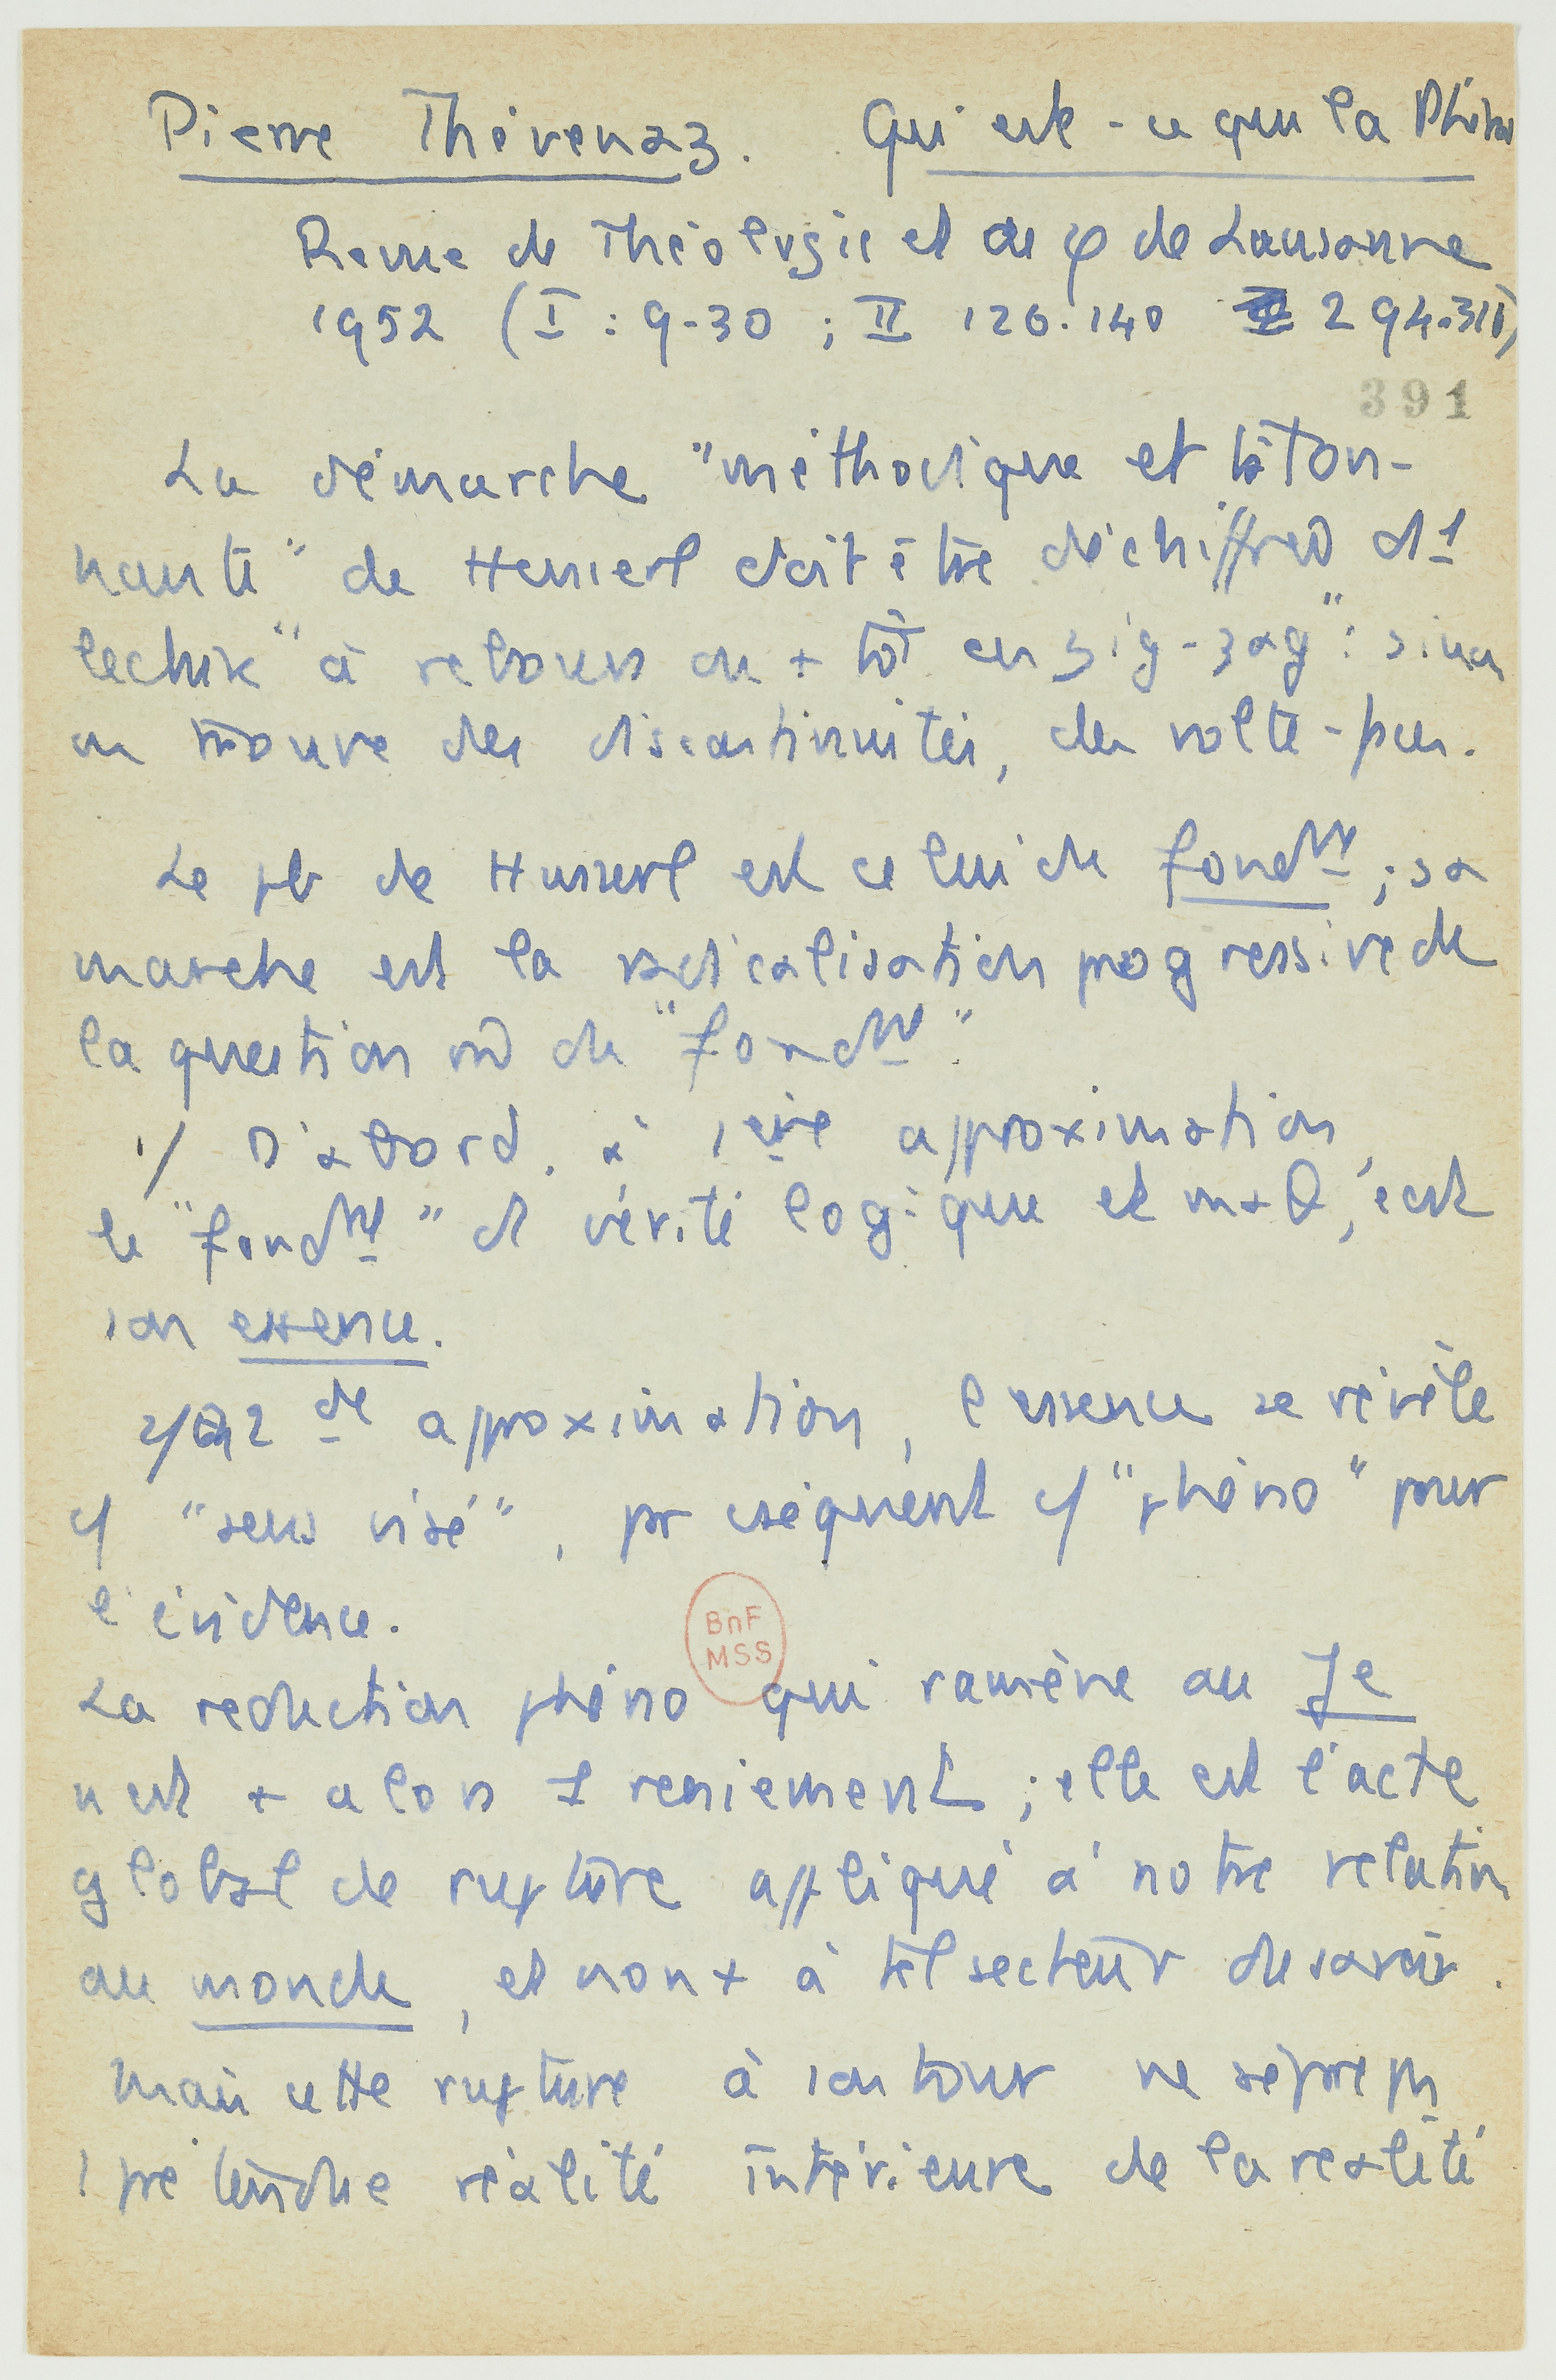 Pierre Thévenaz. Qu'est-ce que la Phéno
Revue de Théologie et de φ de Lausanne
1952 (I : 9-30 ; II 126-140 294-316)
391
La démarche "méthodique et tâton-
nante" de Husserl doit être déchiffrée ds 1
lecture "à rebours ou + tôt en zig-zag" : sinon
on trouve des discontinuités, des volte-faces.
Le pb de Husserl est celui du fondmt ; sa
marche est la radicalisation progressive de
la question du "fondmt".
1/ D'abord, à 1ère approximation,
le "fondmt" d vérité logique et maθ, c'est
son essence.
2/ A 2de approximation, l'essence se révèle
c/ "sens visé", pr conséquent c/ "phéno" pour
l'évidence.
BnF
MSS
La réduction phéno qui ramène au Je
n'est + alors 1 reniement ; elle est l'acte
global de rupture appliqué à notre relation
au monde, et non + à tel secteur du savoir.
Mais cette rupture à son tour ne sépare pas
1 prétendue réalité intérieure de la réalité